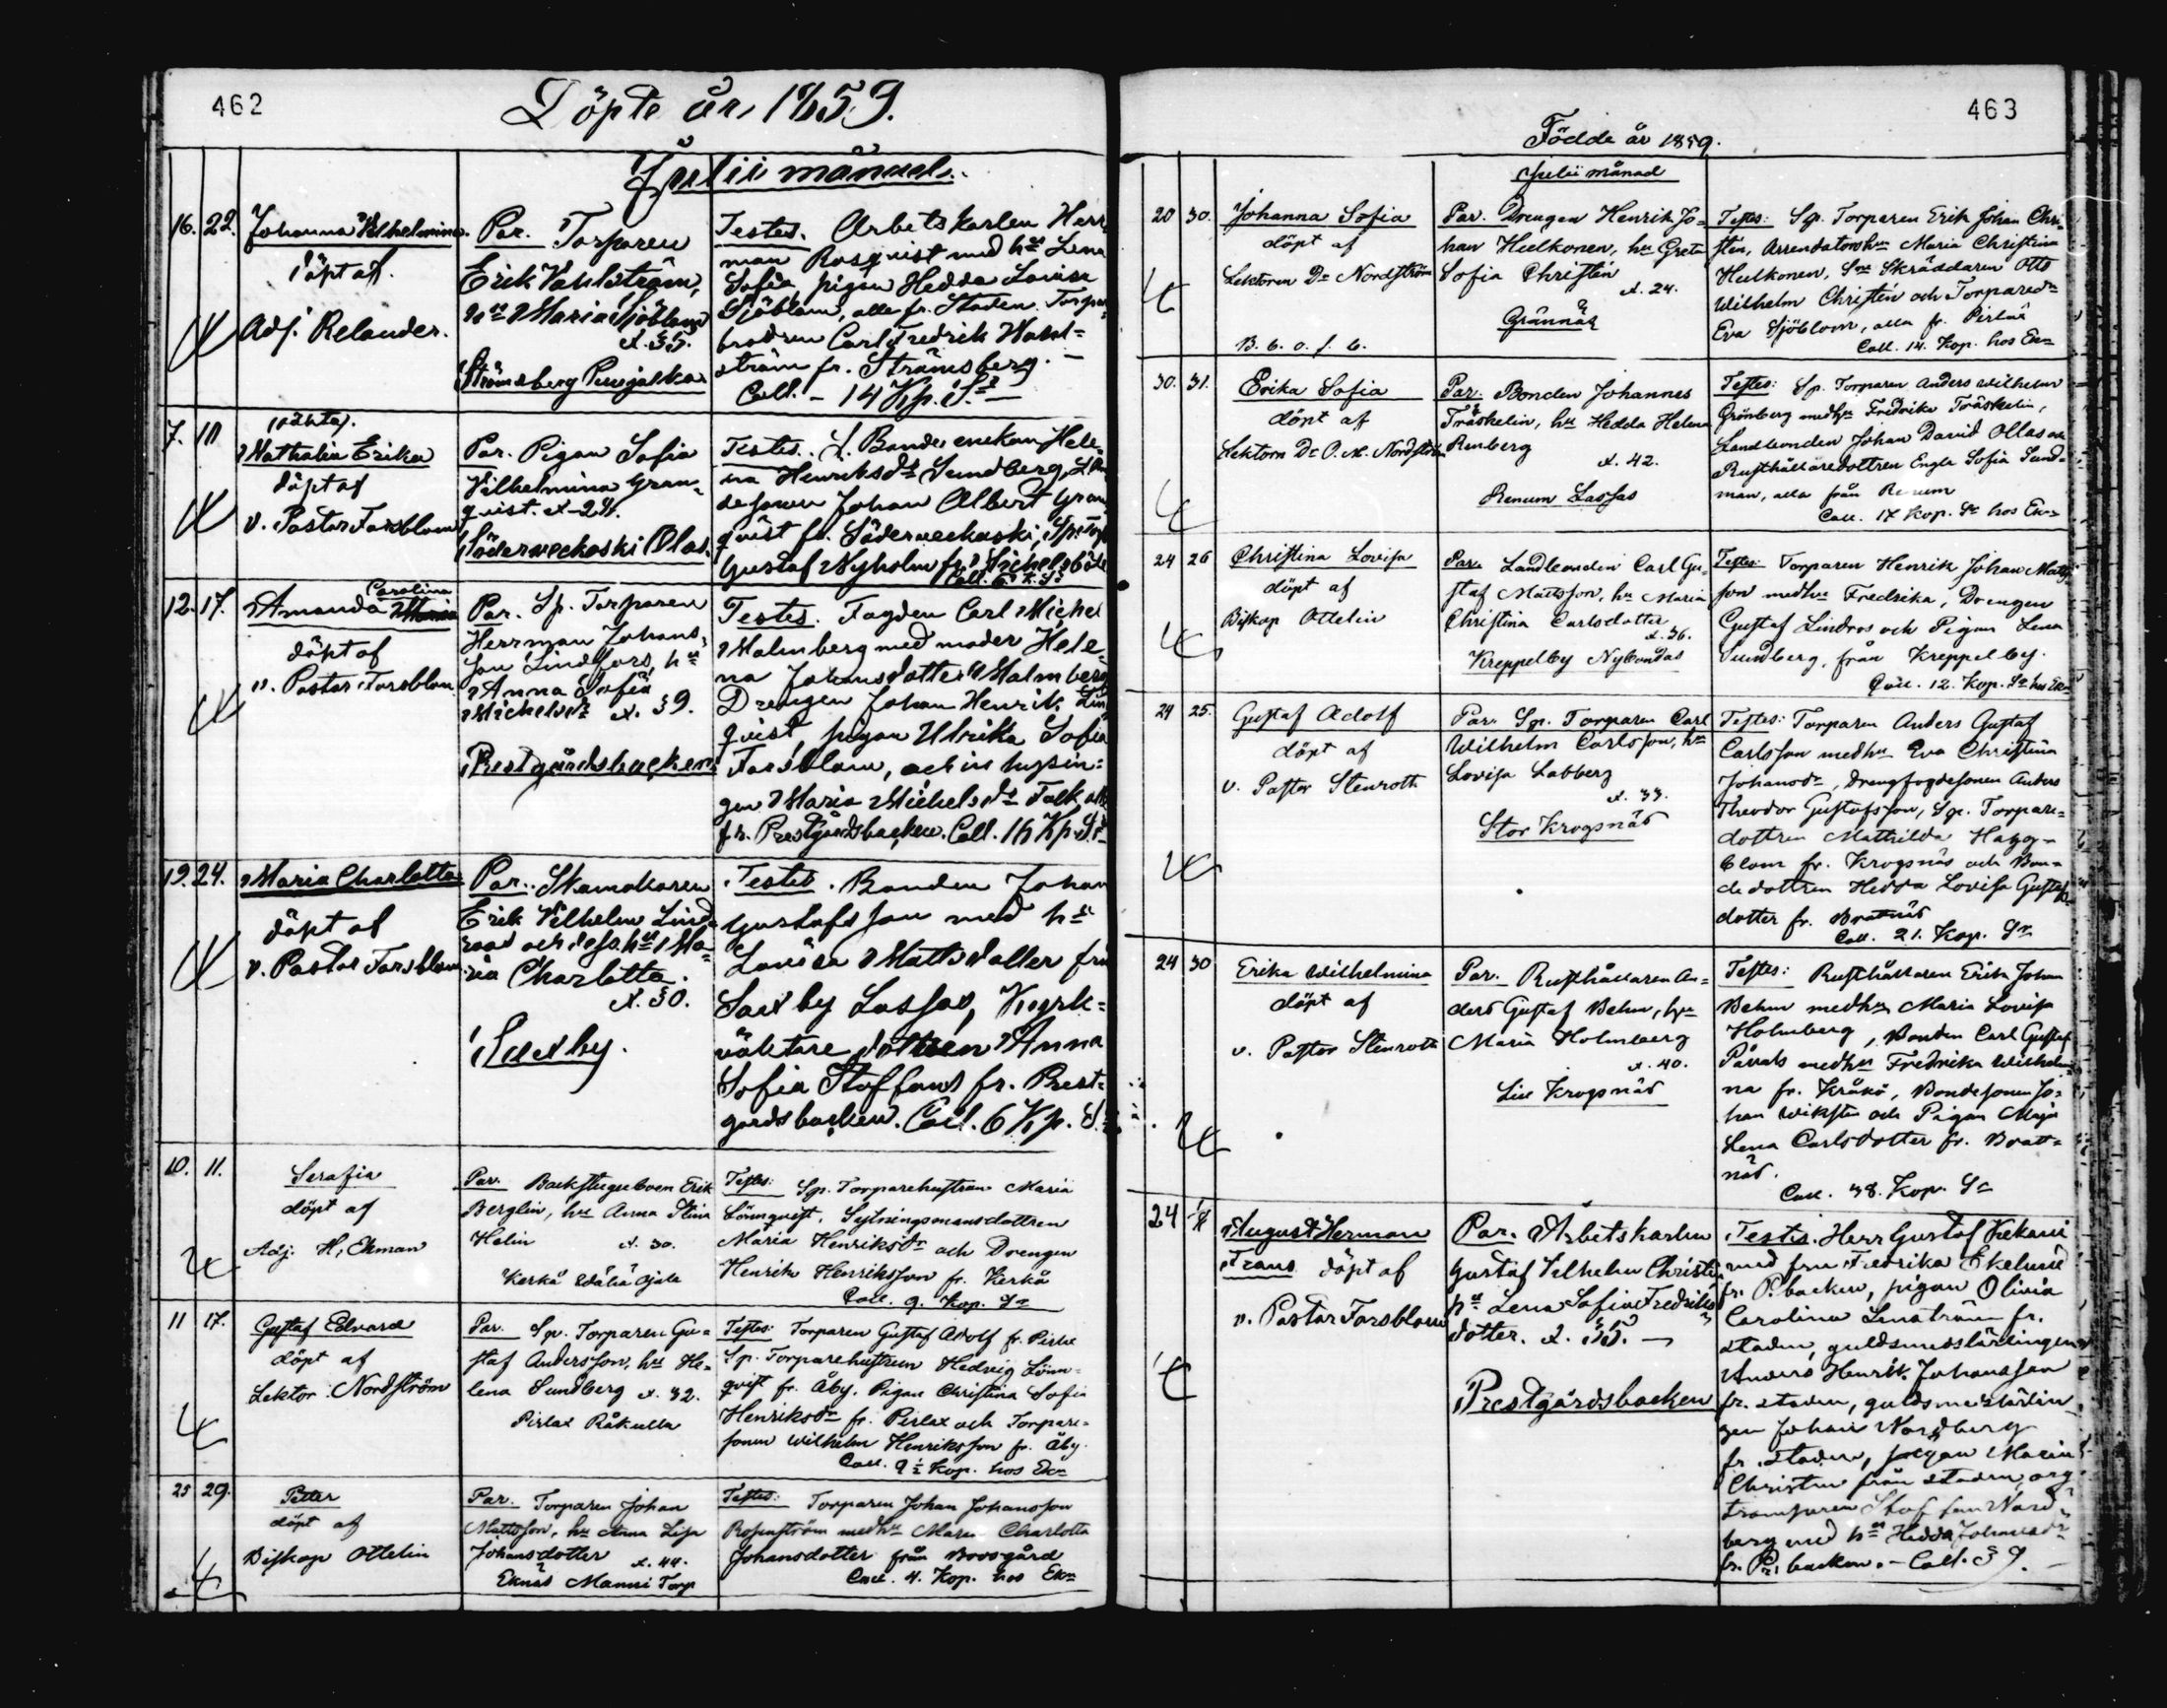 462
Döpte år 1859.
Julii månad.
16. 22. Johanna Vilhelmina.
döpt af.
Adj. Relander.
Par. Torparen
Erik Vahlström,
hu Maria Sjöblom
æ. 35.
Strömsberg
Testes. Arbetskarlen Herr
man Rosqvist med hu Lena
Sofia, pigan Hedda Lovisa
Sjöblom, alla fr. Staden. Torpare
brodren Carl Fredrik Wahl-
ström fr. Strömsberg. —
Coll. - 14 Kp. Sr
7. 10
oäkta.
Nathalia Erika
döpt af
v. Pastor Forsblom
Par. Pigan Sofia
Vilhelmina Gran-
qvist. æ. 24.
Söderveckoski Olas.
Testes. f. Bonde enekan Hele-
na Henriksdr Sundberg,
desonen Johan Albert Gran
qvist fr. Söderveckoski, Sp. Torp
Gustaf Nyholm fr. Michelsböle
Coll. 6 K. Sr
12. 17.
Carolina
Amanda Maria
döpt af
v. Pastor Forsblom
Par. Sp. Torparen
Herrman Johans-
son Lindfors, hu
Anna Sofia
Michelsdr æ. 39.
Prestgårdsbacken
Testes. Fogden Carl Michel
Malmberg med moder Hele-
na Johansdotter Malmberg
Drengen Johan Henrik Lin
qvist, pigan Ulrika Sofia
Forsblom, och inhysin-
gen Maria Michelsdr Falk, alla
fr. Prestgårdsbacken. Coll. 16 Kp. Sr
19. 24. Maria Charlotta
döpt af
v. Pastor Forsblom
Par. Skomakaren
Erik Vilhelm Lind-
roos och dess hu Ma-
ria Charlotta.
æ. 30.
Saxby.
Testes. Bonden Johan
Gustafsson med hu
Lovisa Mattsdotter från
Saxby Lassas, Kyrk-
väktare dottren Anna
Sofia Staffans fr. Prest-
gårdsbacken. Coll. 6 Kp. S.
10. 11. Serafia
döpt af
Adj. H. Ekman
Par. Backstuguboen Erik
Berglin, hu Anna Stina
Helin æ. 30.
Kerkå
Testes: Sp. Torparehustrun Maria
Lönnqvist, Sytningsmansdottren
Maria Henriksdr och Drengen
Henrik Henriksson fr. Kerkå
Coll. 9. Kop. Sr
11 17. Gustaf Edvard
döpt af
Lektor Nordström
Par. Sp. Torparen Gu-
staf Andersson, hu He-
lena Sundberg æ. 32.
Pirlax Råkulla
Testes: Torparen Gustaf Adolf fr. Pirlax
Sp. Torparehustrun Hedvig Lönn-
qvist fr. Åby. Pigan Christina Sofia
Henriksdr fr. Pirlax och Torpare-
sonen Wilhelm Henriksson fr. Åby.
Coll. 9½ Kop. hos Ekn
25 29. Petter
döpt af
Biskop Ottelin
Par. Torparen Johan
Mattsson, hu Anna Lisa
Johansdotter æ. 44.
Eknäs Manni Torp
Testes: Torparen Johan Johansson
Rosenström medhu Maria Charlotta
Johansdotter från Boosgård
Coll. 4. Kop. hos Ekn
463
Födde år 1859.
Julii månad
20 30. Johanna Sofia
döpt af
Lektoren Dr Nordström
B. b. o. f. b.
Par. Drengen Henrik Jo-
han Hulkonen, hu Greta
Sofia Christén
æ. 24.
Grännäs
Testes: Sp. Torparen Erik Johan Chri-
stén, Arrendatorshu Maria Christina
Hulkonen, Skräddaren Otto
Wilhelm Christén och Torparedr
Eva Sjöblom, alla fr. Pirlax
Coll. 14. Kop. hos Ekn
30. 31. Erika Sofia
döpt af
Lektorn Dr O. M. Nordström
Par. Bonden Johannes
Träskelin, hu Hedda Helena
Renberg
æ. 42.
Renum Lassas
Testes: Sp. Torparen Anders Wilhelm
Grönberg medhu Fredrika Träskelin,
Landbonden Johan David Ollas och
Rusthållaredottren Engla Sofia Sund-
man, alla från Renum
Coll. 17 Kop. Sr hos Ekn
24 26 Christina Lovisa
döpt af
Biskop Ottelin
Par. Landbonden Carl Gu-
staf Mattsson, hu Maria
Christina Carlsdotter
æ. 36.
Kreppelby Nybondas
Testes: Torparen Henrik Johan Matts
son medhu Fredrika, Drengen
Gustaf Lindros och Pigan Lena
Sundberg, från Kreppelby.
Coll. 12. Kop. Sr hos Ekn
24 25. Gustaf Adolf
döpt af
v. Pastor Stenroth
Par. Sp. Torparen Carl
Wilhelm Carlsson, hu
Lovisa Labberg
æ. 33.
Stor Krogsnäs
Testes: Torparen Anders Gustaf
Carlsson medhu Eva Christina
Johansdr, Drengfogdesonen Anders
Theodor Gustafsson, Sp. Torpare-
dottren Mathilda Hagg-
blom fr. Krogsnäs och Bon-
dedottren Hedda Lovisa Gustafs
dotter fr. Bratnäs
Coll. 21. Kop. Sr
24 30 Erika Wilhelmina
döpt af
v. Pastor Stenroth
Par. Rusthållaren An-
ders Gustaf Behm, hu
Maria Holmberg
æ. 40.
Lill Krogsnäs
Testes: Rusthållaren Erik Johan
Behm medhu Maria Lovisa
Holmberg, Bonden Carl Gustaf
Pavals medhu Fredrika Wilhelmi
na fr. Kråkö, Bondesonen Jo-
han Wiksten och Pigan Maja
Lena Carlsdotter fr. Bratt-
näs.
Coll. 38. Kop. Sr
24 1/8 August Herman
Frans döpt af
v. Pastor Forsblom
Par. Arbetskarlen
Gustaf Vilhelm Christén
hu Lena Sofia Fredriks
dotter. æ. 35. —
Prestgårdsbacken
Testes. Herr Gustaf Ekelund
med fru Fredrika Ekelund
fr. P. backen, pigan Olivia
Carolina Lenström fr.
staden, guldsmedslärlingen
Anders Henrik Johansson
fr. staden, guldsmedslärlin
gen Johan Nordberg
fr. staden, pigan Maria
Christén från staden, org
tramparen Staffan Nord-
berg med hu Hedda Johansdr
fr. Pr. backen. - Coll. 39. —